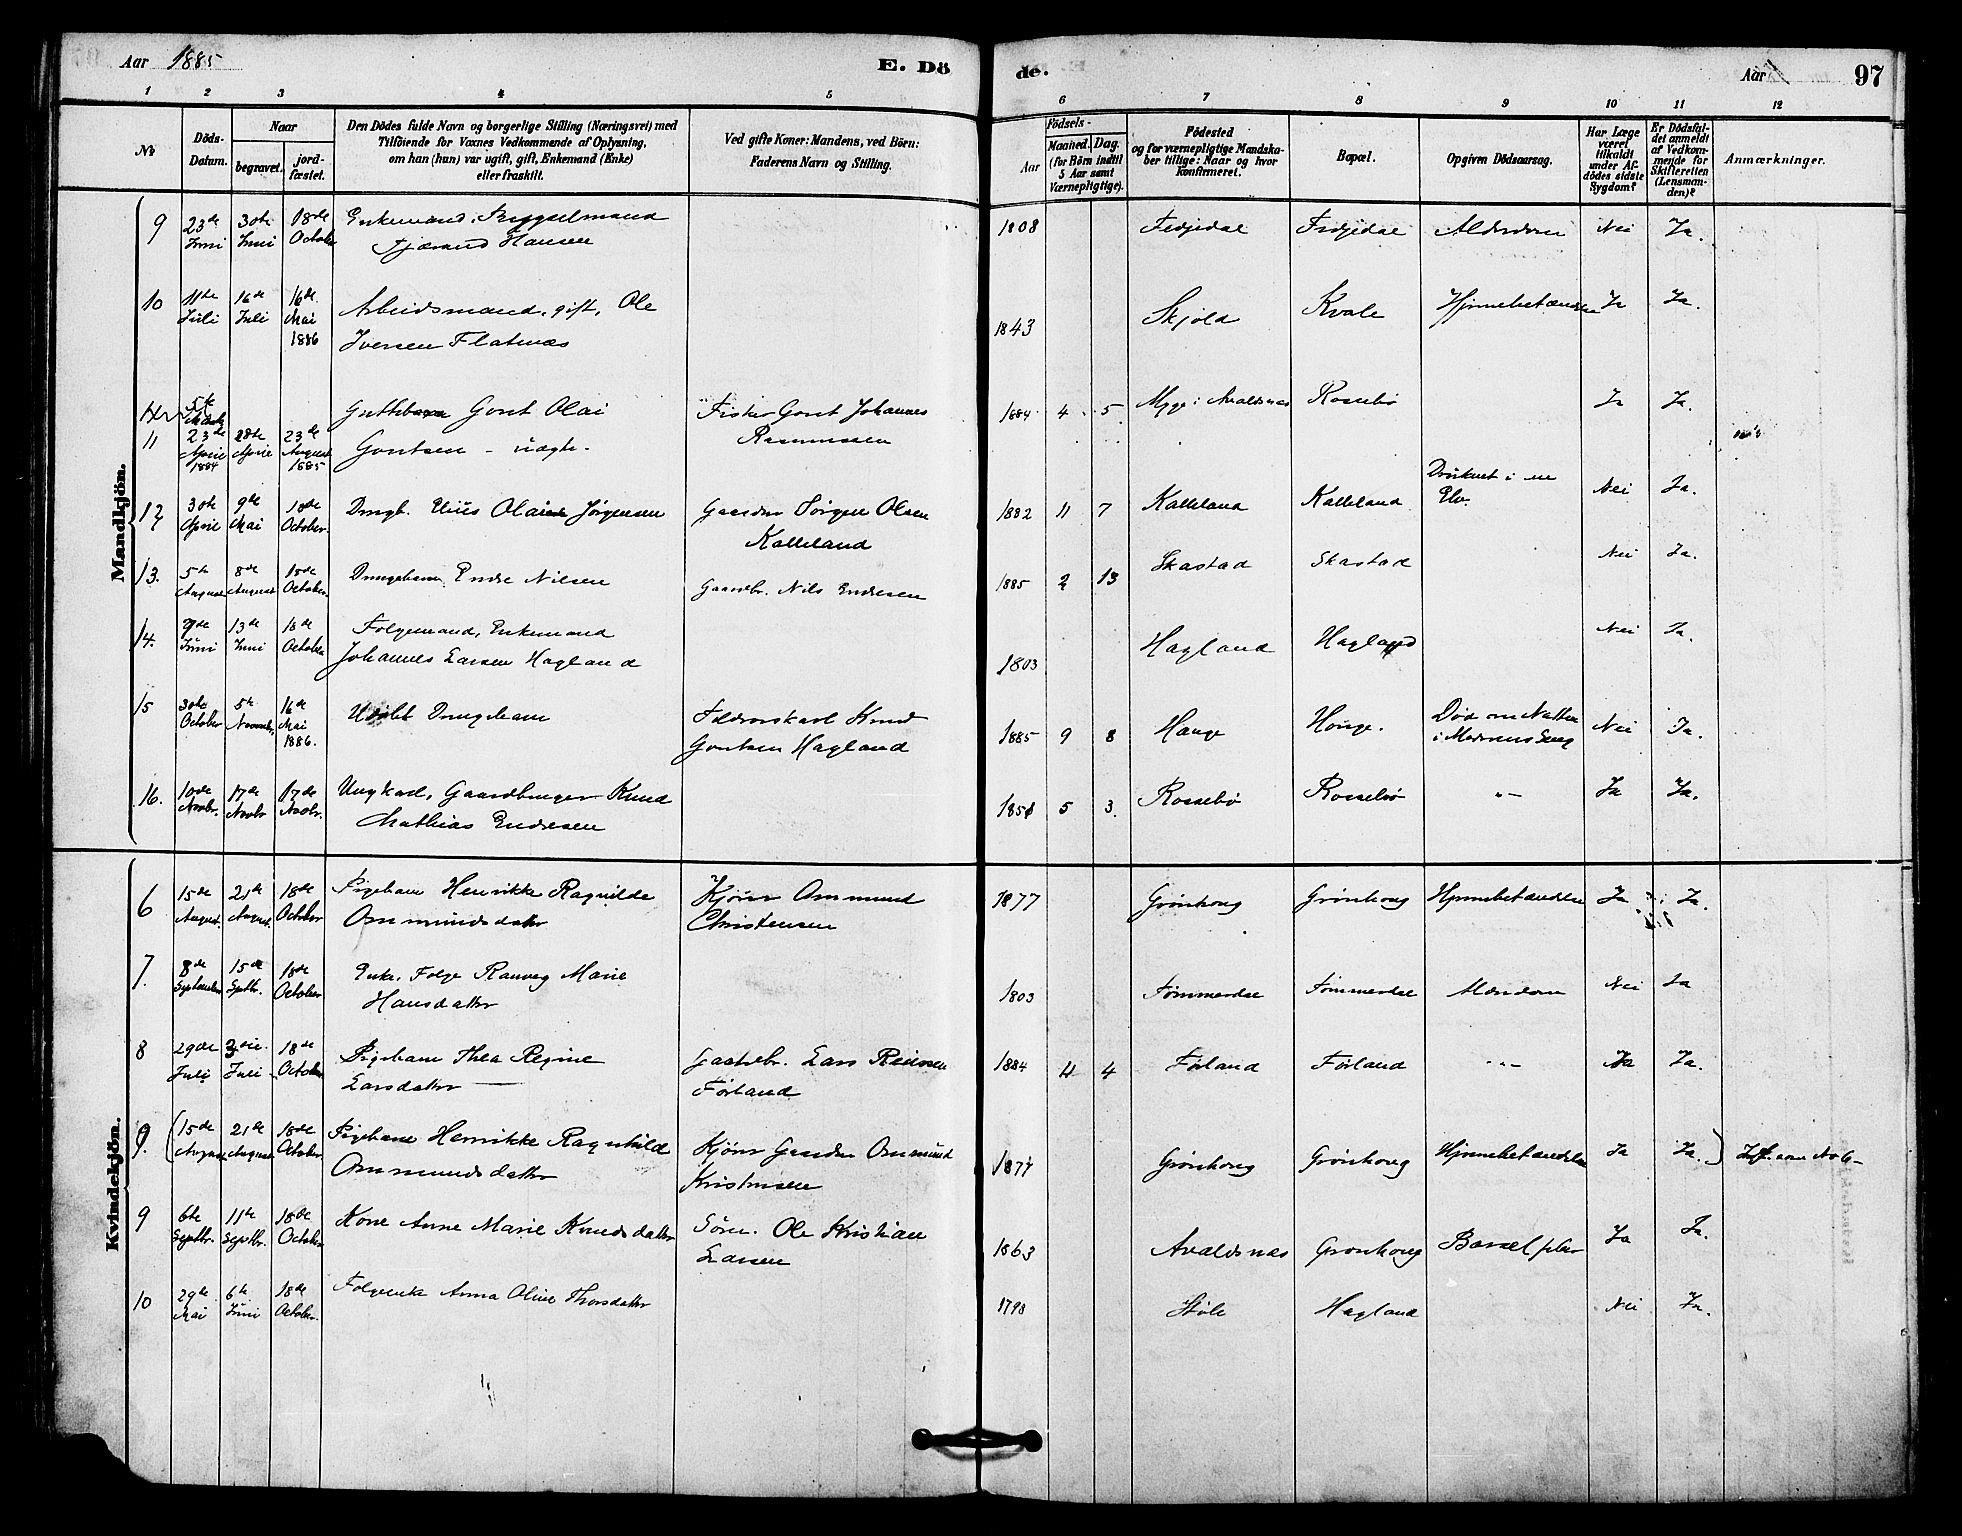 Aar 1885 E. Döde. Aar 97
1 2 3 4 5 6 7 8 9 10 11 12
№
Döds-Datum.
Naar
begravet.
jordfæstet.
Den Dödes fulde Navn og borgerlige Stilling (Næringsvei) med
Tilföiende for Voxnes Vedkommende af Oplysning,
om han (hun) var ugift, gift, Enkemand (Enke)
eller fraskilt.
Ved gifte Koner: Mandens, ved Börn:
Faderens Navn og Stilling.
Födsels-
Aar
Maaned. Dag.
(for Börn indtil
5 Aar samt
Værnepligtige).
Födested
og for værnepligtige Mandskaber
tillige: Naar og hvor
konfirmeret.
Bopæl.
Opgiven Dödsaarsag.
Har Læge
været
tilkaldt
under Afdödes
sidste
Sygdom?
Er Dödsfaldet
anmeldt
af Vedkommende
for
Skifteretten
(Lensmanden)?
Anmærkninger.
Mandkjön.
9 23de Juni 30te Juni 18de October Enkemand,
Tjærand Hansen 1808 Alderdom Nei Ja.
10 11te Juli 16de Juli 16de Mai 1886 Arbeidsmand, gift, Ole
Iversen Flatnæs 1843 Skjold Kvale Hjernebetændelse Ja Ja.
11 23de April 1884 28de April 23de August 1885 Guttebarn Gont Olai
Gontsen - uægte. Fisker Gont Johannes
Rasmussen 1884 4 5 i Avaldsnæs Rossebø Ja Ja.
12 30te April 9de Mai 18de October Drngb. Elius Olai Jørgensen Gaardbr Jørgen Olsen
Kalleland 1882 11 7 Kalleland Kalleland Druknet i en
Elv. Nei Ja.
13. 5te August 8de August 18de October Drengebarn Endre Nilsen Gaardbr. Nils Endresen 1885 2 13 Skastad Skastad Nei Ja.
14. Juni 13de Juni 18de October Folgemand, Enkemand
Johannes Larsen Hagland 1803 Hagland Hagland Nei Ja.
15 30te October 5te November 16de Mai 1886. Udøbt Drngebarn Knud
Gontsen Hagland 1885 9 8 Hauge Hauge. Død om Natten
i Moderens Seng Nei Ja.
16. 10de Novbr. 17de Novbr 17de Novbr. Ungkarl, Gaardbruger Knud
Mathias Endresen 1851 5 3. Rossebø Rossebø "- Ja Ja.
Kvindekjön.
6 15de August. 21de August. 18de October Pigebarn Henrikke Ragnilde
Ommundsdatter Ommund
Christensen 1877 Grønhoug Grønhoug Hjernebetændelse Ja Ja.
7. 8de September 15de Septbr. 18de October Enke, Folge Ranveg Marie
Hansdatter 1803 Tømmerdal Tømmerdal Alderdom Nei Ja
8 29de Juli Juli 18de October Pigebarn Thea Regine
Larsdatter Gaardbr. Lars
Førland 1884 4 4 Førland Førland "- Ja Ja.
9. 15de August 21de August 18de October Pigebarn Henrikke Ragnhild
Ommundsdatter Gaardbr Ommund
Kristensen 1877 Grønhoug Grønhoug Hjernebetændelse Ja Ja. som No 6-
9 6te Septbr. 11te Septbr. 18de October Kone Anne Marie Knudsdatter Ole Kristian
Larsen 1863 Avaldsnæs Grønhoug Barselfeber Ja Ja.
10 29de Mai 6te Juni 18de October. Folgeenke Anna Oline Thorsdatter 1798 Støle Hagland Nei Ja.